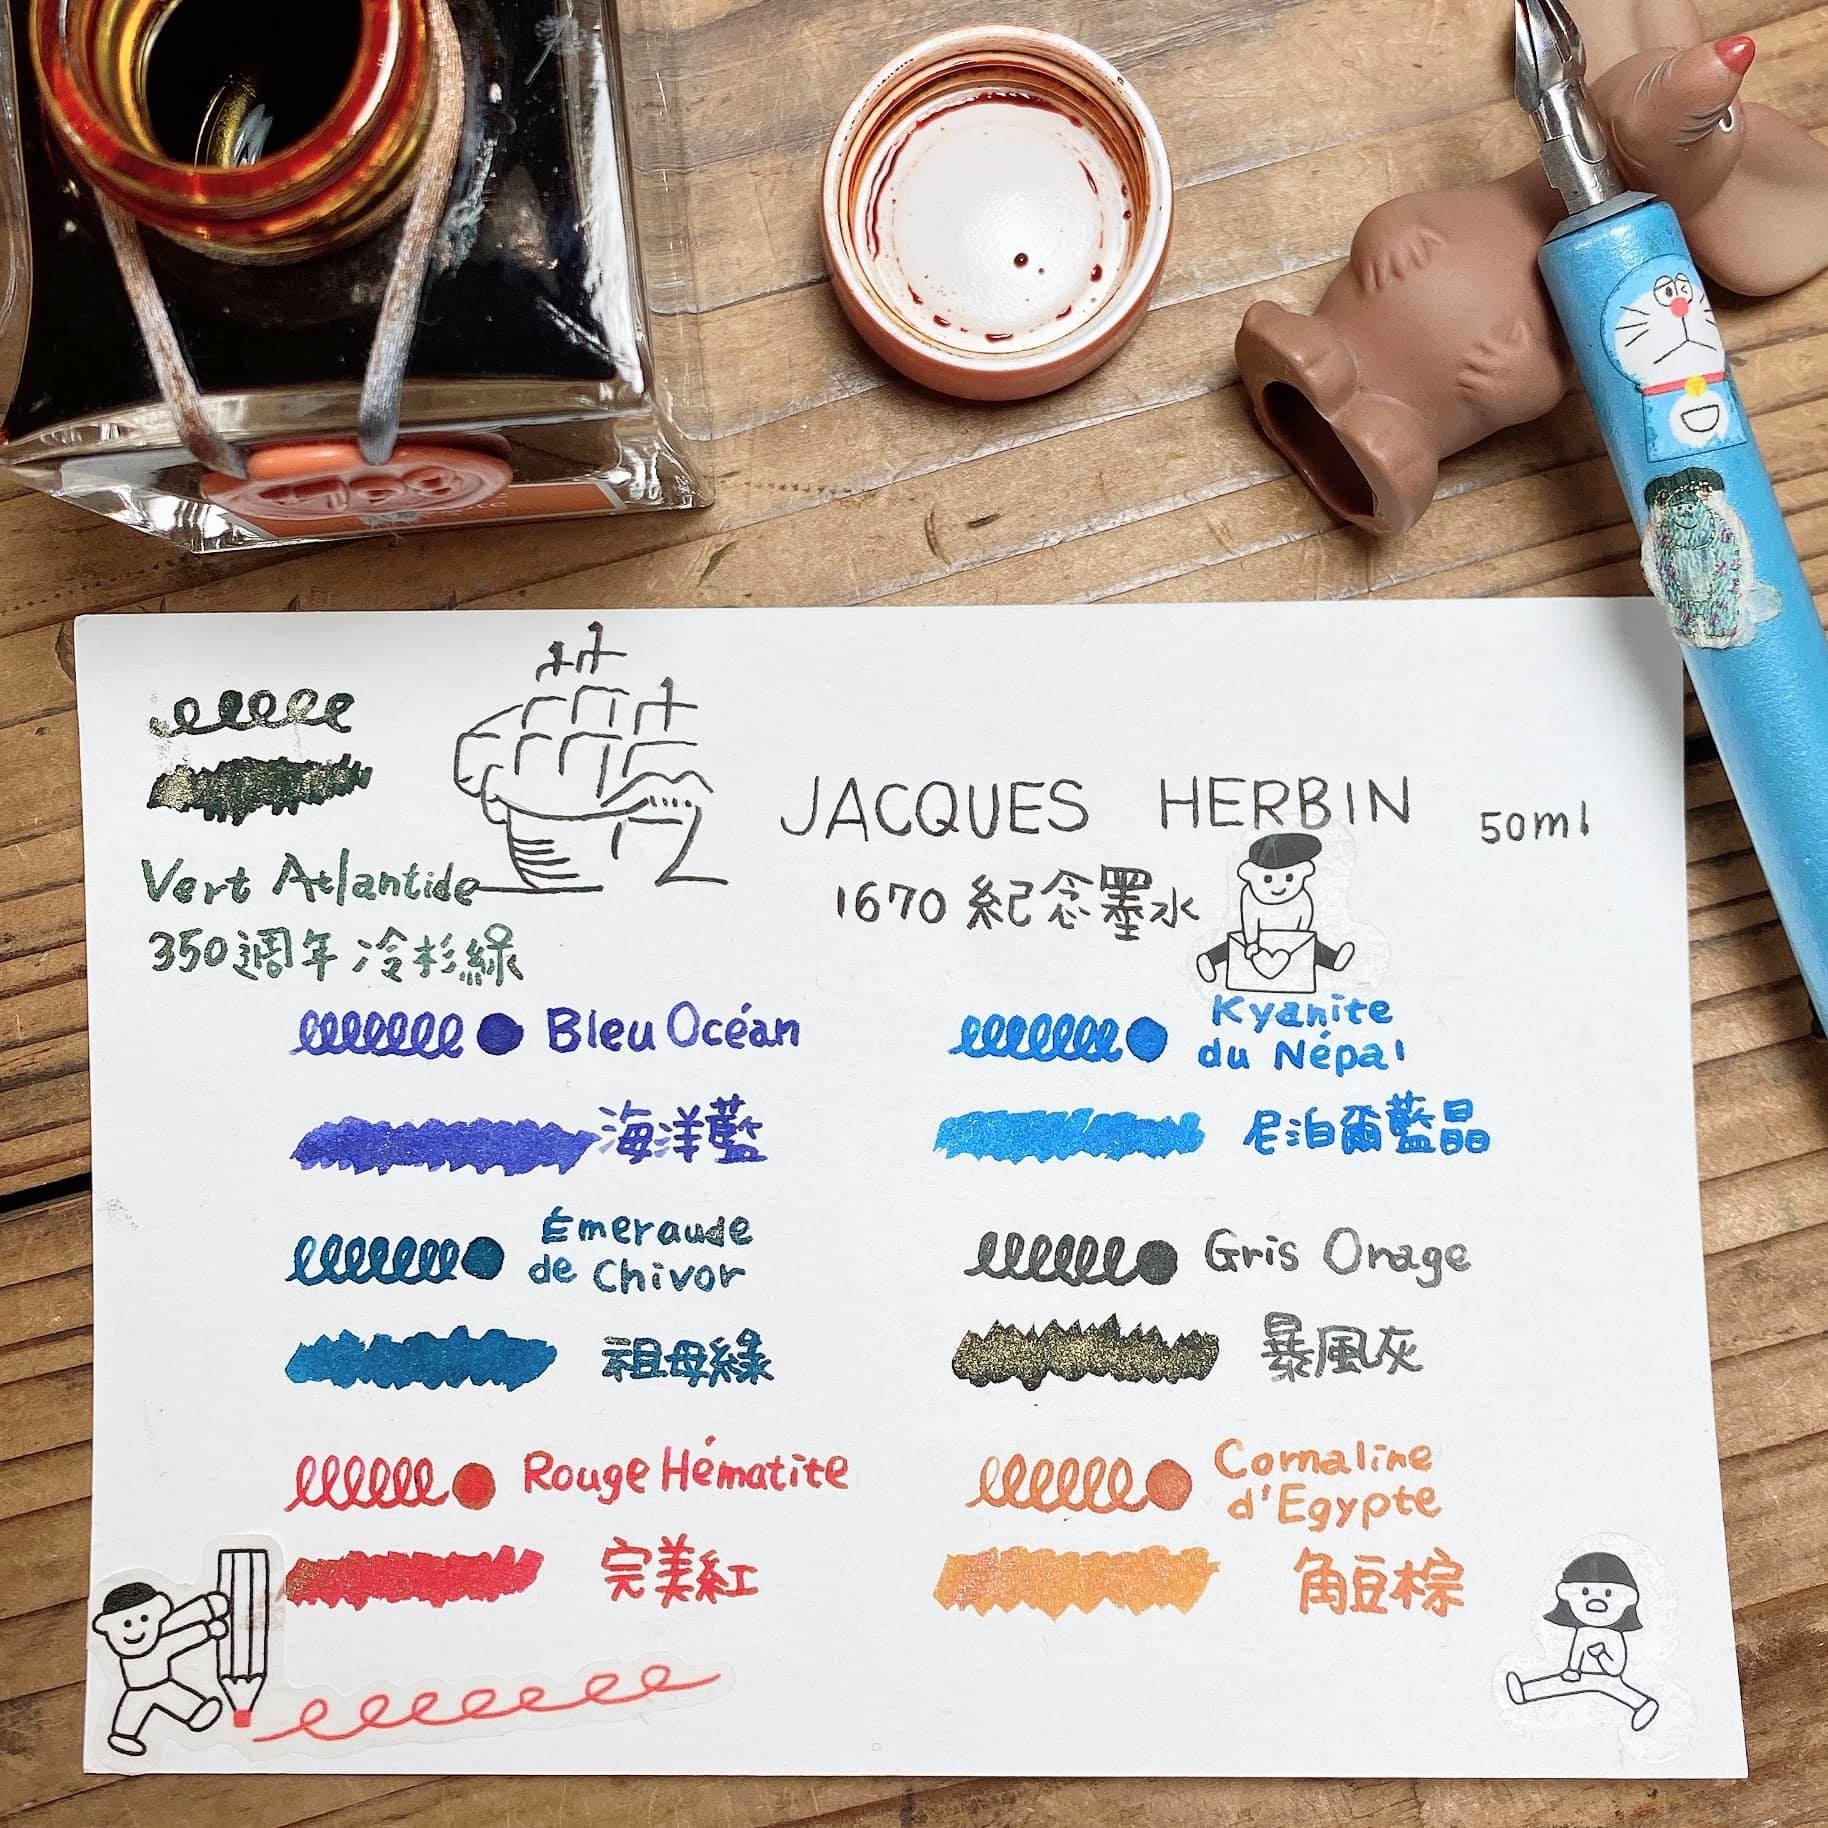 JACQUES HERBIN 50ml
1670 紀念墨水
Vert Atlantide
350週年 冷杉綠
Bleu Océan
海洋藍
Kyanite
du Népal
尼泊爾藍晶
Émeraude
de Chivor
祖母綠
Gris Orage
暴風灰
Rouge Hématite
完美紅
Cornaline
d'Egypte
角豆棕